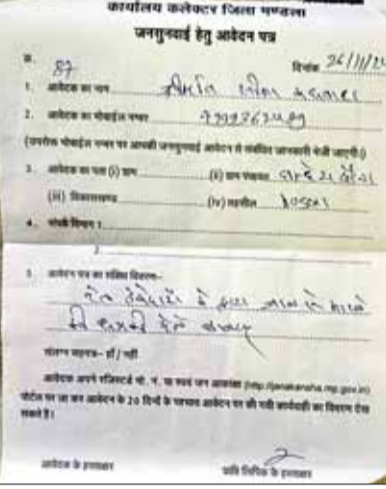 कार्यालय कलेक्टर जिला मण्डला
जनसुनवाई हेतु आवेदन पत्र
क्र. 87 दिनांक 26/11/24
1. आवेदक का नाम श्रीमति
2. आवेदक का मोबाईल नम्बर
(उपरोक्त मोबाईल नम्बर पर आपकी जनसुनवाई आवेदन से संबंधित जानकारी भेजी जाएगी।)
3. आवेदक का पता (i) ग्राम (ii) ग्राम पंचायत
(iii) विकासखण्ड (iv) तहसील
4. संबंधित विभाग 1.
2
5. आवेदन पत्र का संक्षिप्त विवरण:-
रेत ठेकेदारों के द्वारा जान से मारने
की धमकी देने बाबत्
संलग्न सहपत्र- हाँ / नहीं
आवेदक अपने रजिस्टर्ड मो. न. या स्वयं जन आकांक्षा (http://janakansha.mp.gov.in)
पोर्टल पर जा कर आवेदन के 20 दिनों के पश्चात आवेदन पर की गयी कार्यवाही का विवरण देख
सकते हैं।
आवेदक के हस्ताक्षर प्रति लिपिक के हस्ताक्षर